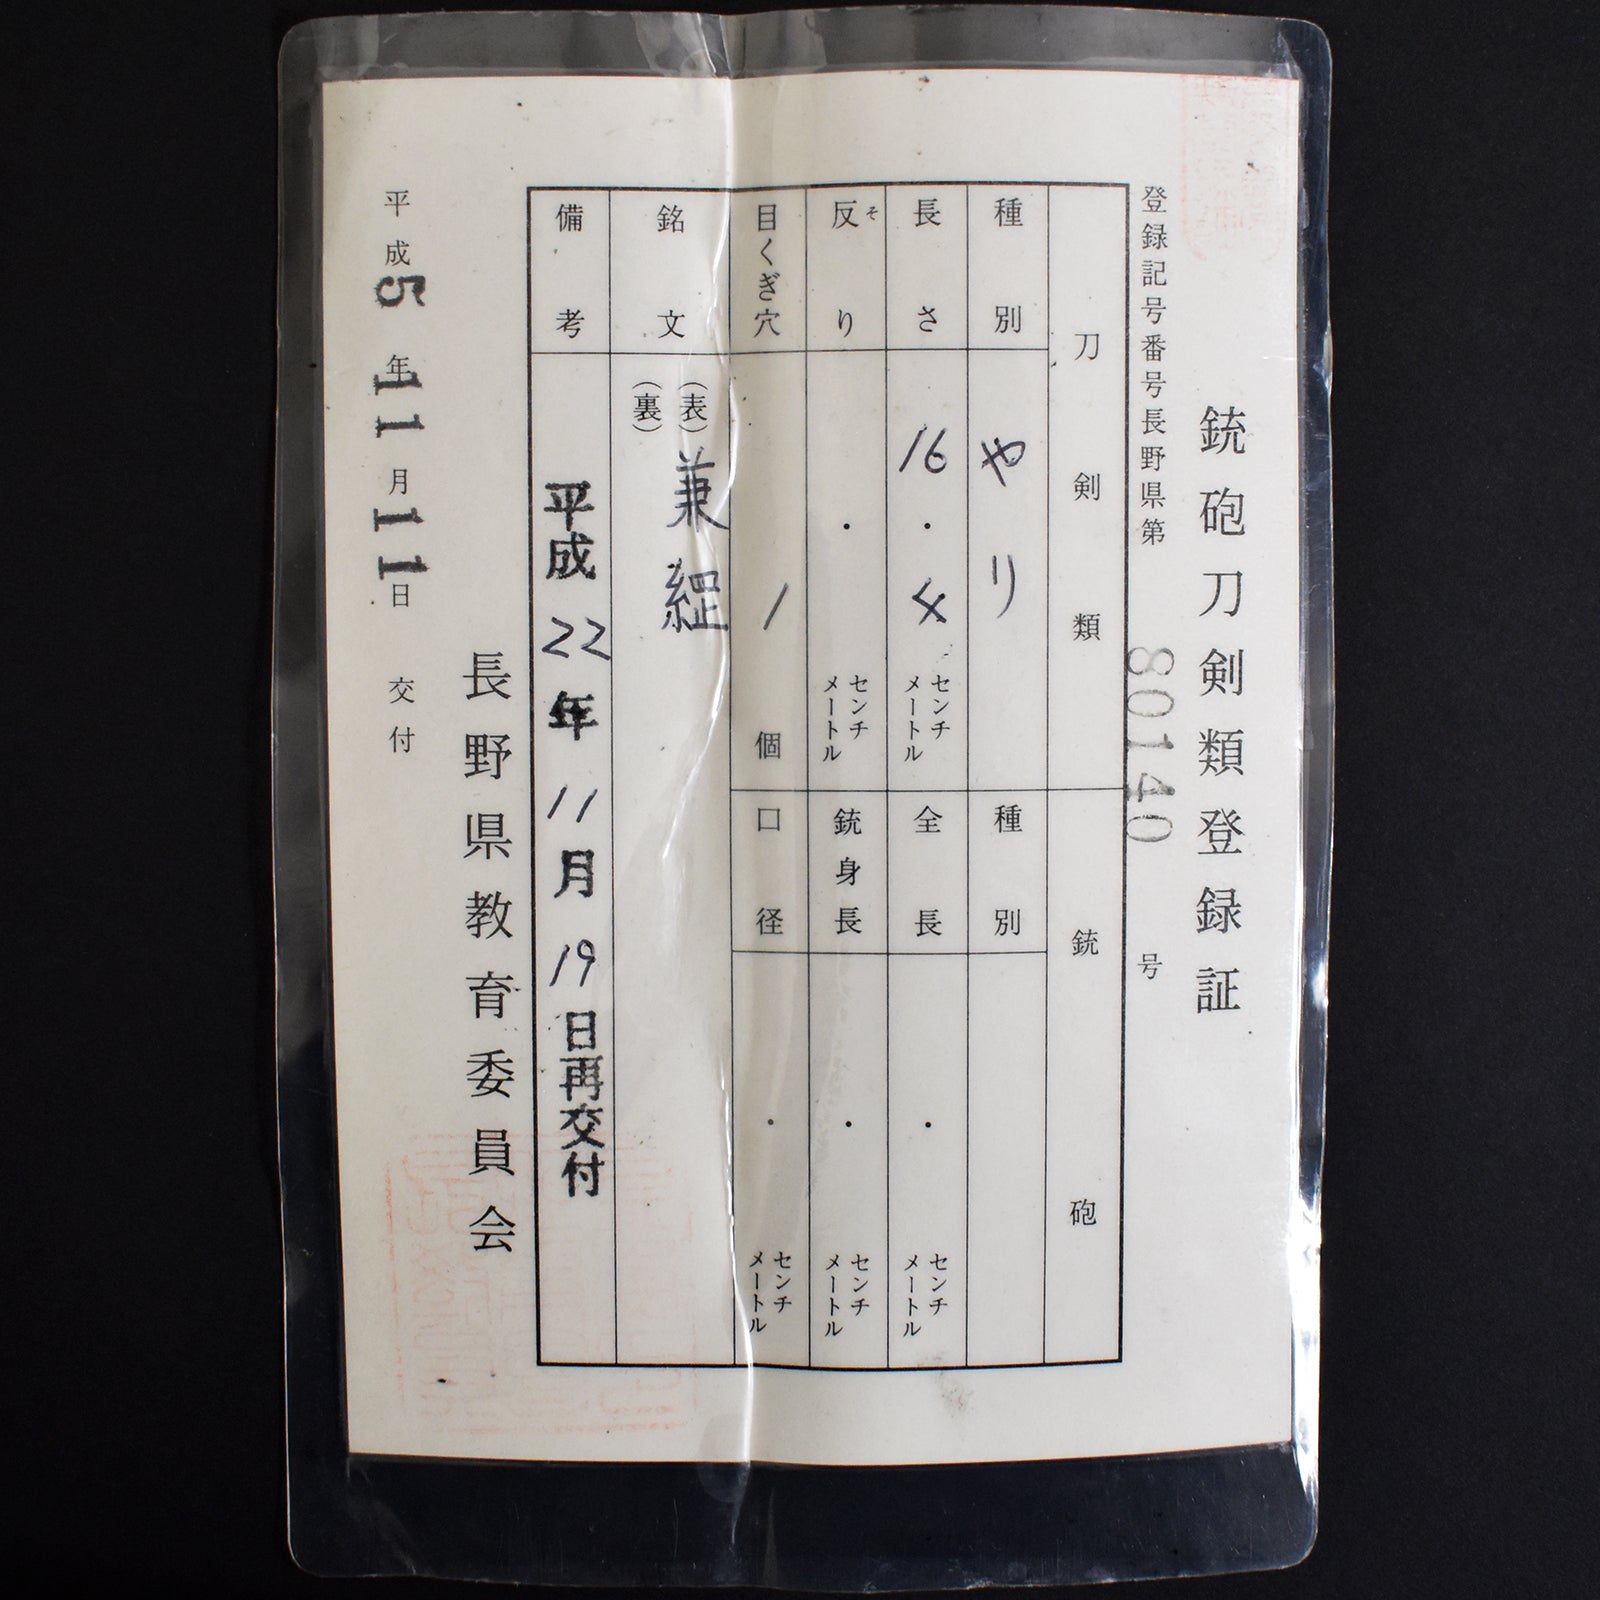 銃砲刀剣類登録証
登録記号番号長野県第80140号
刀剣類
種別 やり
長さ 16.4 センチメートル
反り そ . センチメートル
目くぎ穴 1 個
銘文 (表) 兼
(裏)
銃砲
種別
全長 . センチメートル
銃身長 . センチメートル
口径 . センチメートル
備考 平成22年11月19日再交付
長野県教育委員会
平成5年11月11日交付